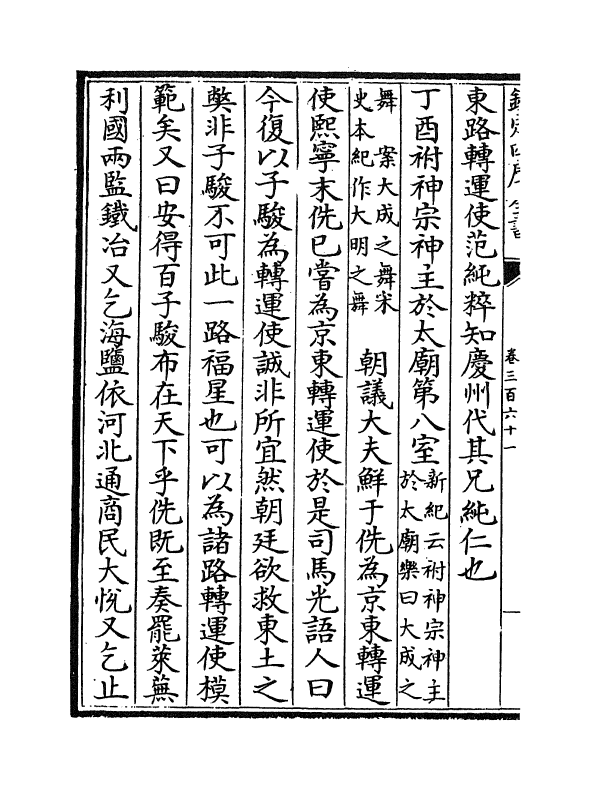 欽定四庫全書
卷三百六十一
東路轉運使范純粹知慶州代其兄純仁也
丁酉祔神宗神主於太廟第八室新紀云祔神宗神主
於太廟樂曰大成之
舞 案大成之舞宋
史本紀作大明之舞
朝議大夫鮮于侁為京東轉運
使熙寧末侁已嘗為京東轉運使於是司馬光語人曰
今復以子駿為轉運使誠非所宜然朝廷欲救東土之
弊非子駿不可此一路福星也可以為諸路轉運使模
範矣又曰安得百子駿布在天下乎侁既至奏罷萊蕪
利國兩監鐵冶又乞海鹽依河北通商民大悅又乞止